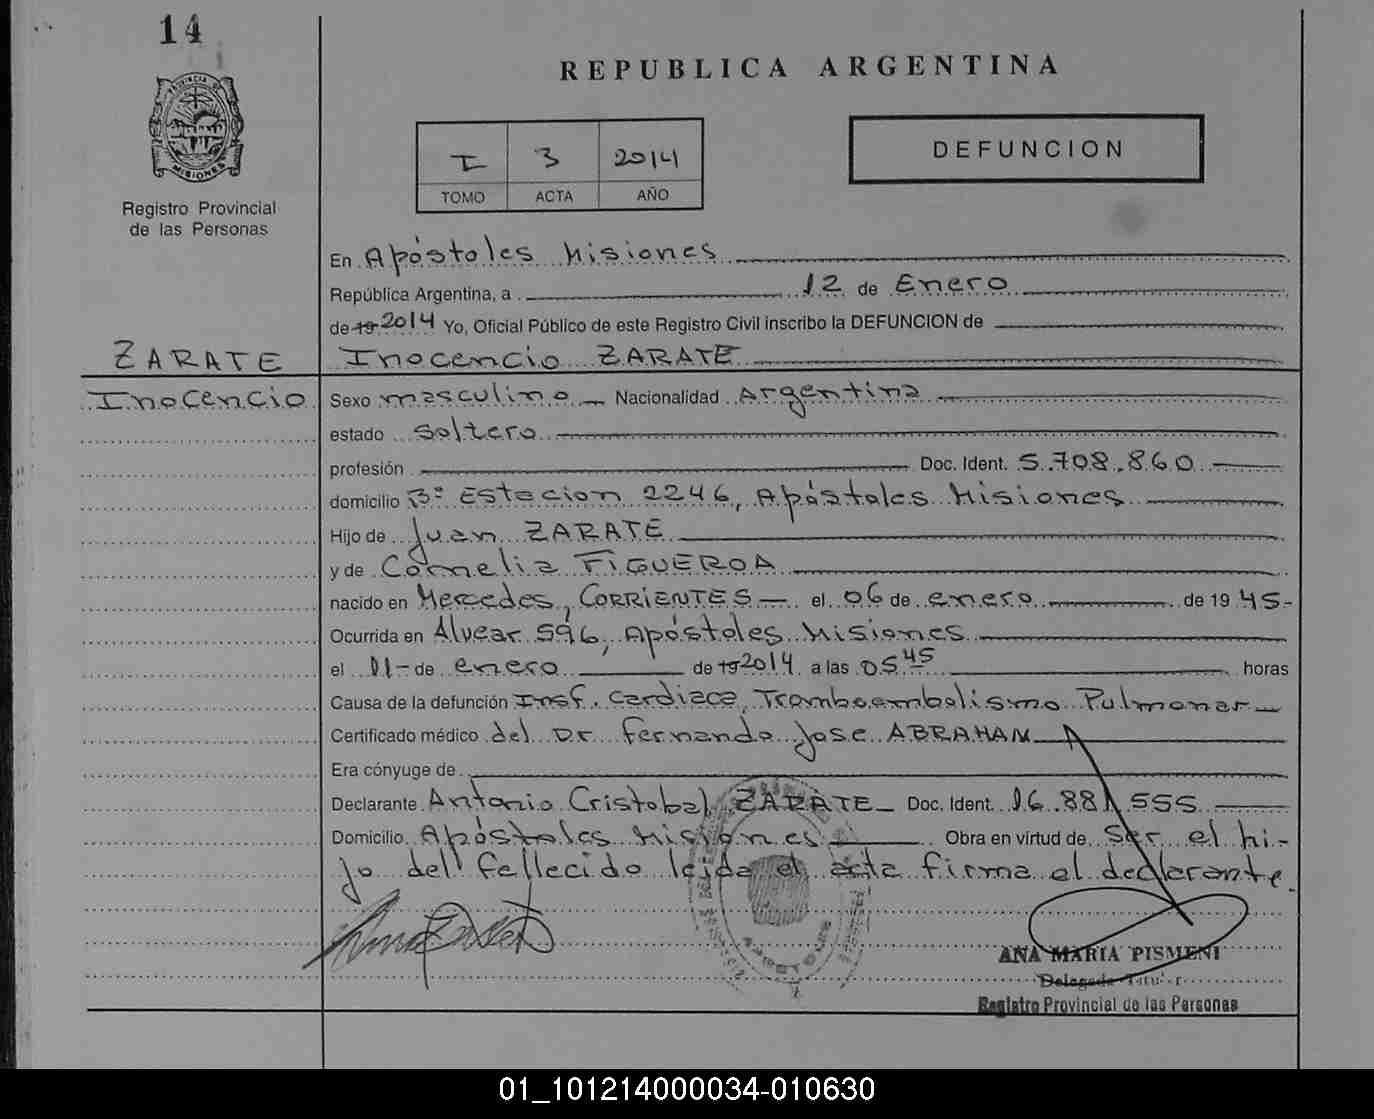 14
REPUBLICA ARGENTINA
I 3 2014
TOMO ACTA AÑO
DEFUNCION
PROVINCIA DE
MISIONES
Registro Provincial
de las Personas
En Apóstoles Misiones
República Argentina, a 12 de Enero
de 19 2014 Yo, Oficial Público de este Registro Civil inscribo la DEFUNCION de
ZARATE Inocencio ZARATE
Inocencio Sexo masculino Nacionalidad Argentina
estado Soltero
profesión Doc. Ident. 5.708.860
domicilio B° Estacion 2246, Apóstoles Misiones
Hijo de Juan ZARATE
y de Cornelia FIGUEROA
nacido en Mercedes, CORRIENTES - el 06 de enero de 1945-
Ocurrida en Alvear 596, Apóstoles Misiones
el 11- de enero de 19 2014 a las 05 45 horas
Causa de la defunción Insf. Cardiaca, Tromboembolismo Pulmonar
Certificado médico del Dr. Fernando Jose ABRAHAN
Era cónyuge de
Declarante Antonio Cristobal ZARATE Doc. Ident. 16.881.555
Domicilio Apóstoles Misiones Obra en virtud de Ser el hi-
jo del fallecido leida el acta firma el declarante.
ANA MARIA PISMENI
Delegada Titular
Registro Provincial de las Personas
01_101214000034-010630